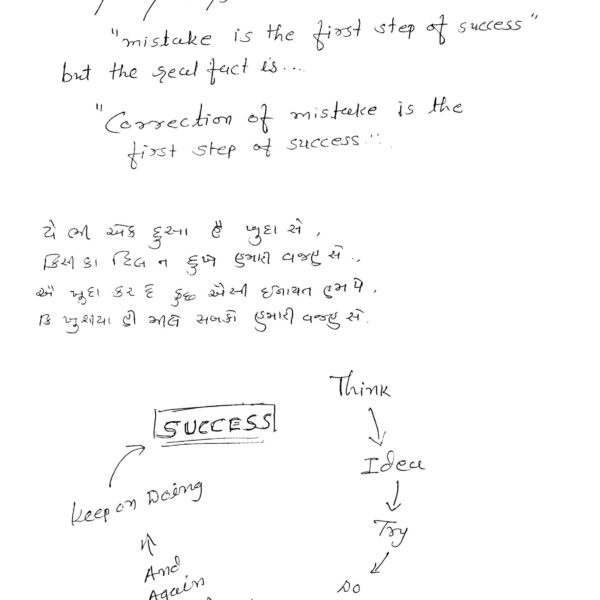 "mistake is the first step of success"
but the real fact is...
"Correction of mistake is the
first step of success"..
યે ભી એક દુઆ હૈ ખુદા સે,
કિસી કા દિલ ન દુખે હમારી વજહ સે.,
એ ખુદા કર દે કુછ ઐસી ઇનાયત હમ પે,
કિ ખુશીયા હી મીલે સબકો હમારી વજહ સે.
Think
SUCCESS
Idea
Keep on Doing
Try
And
Again
Do